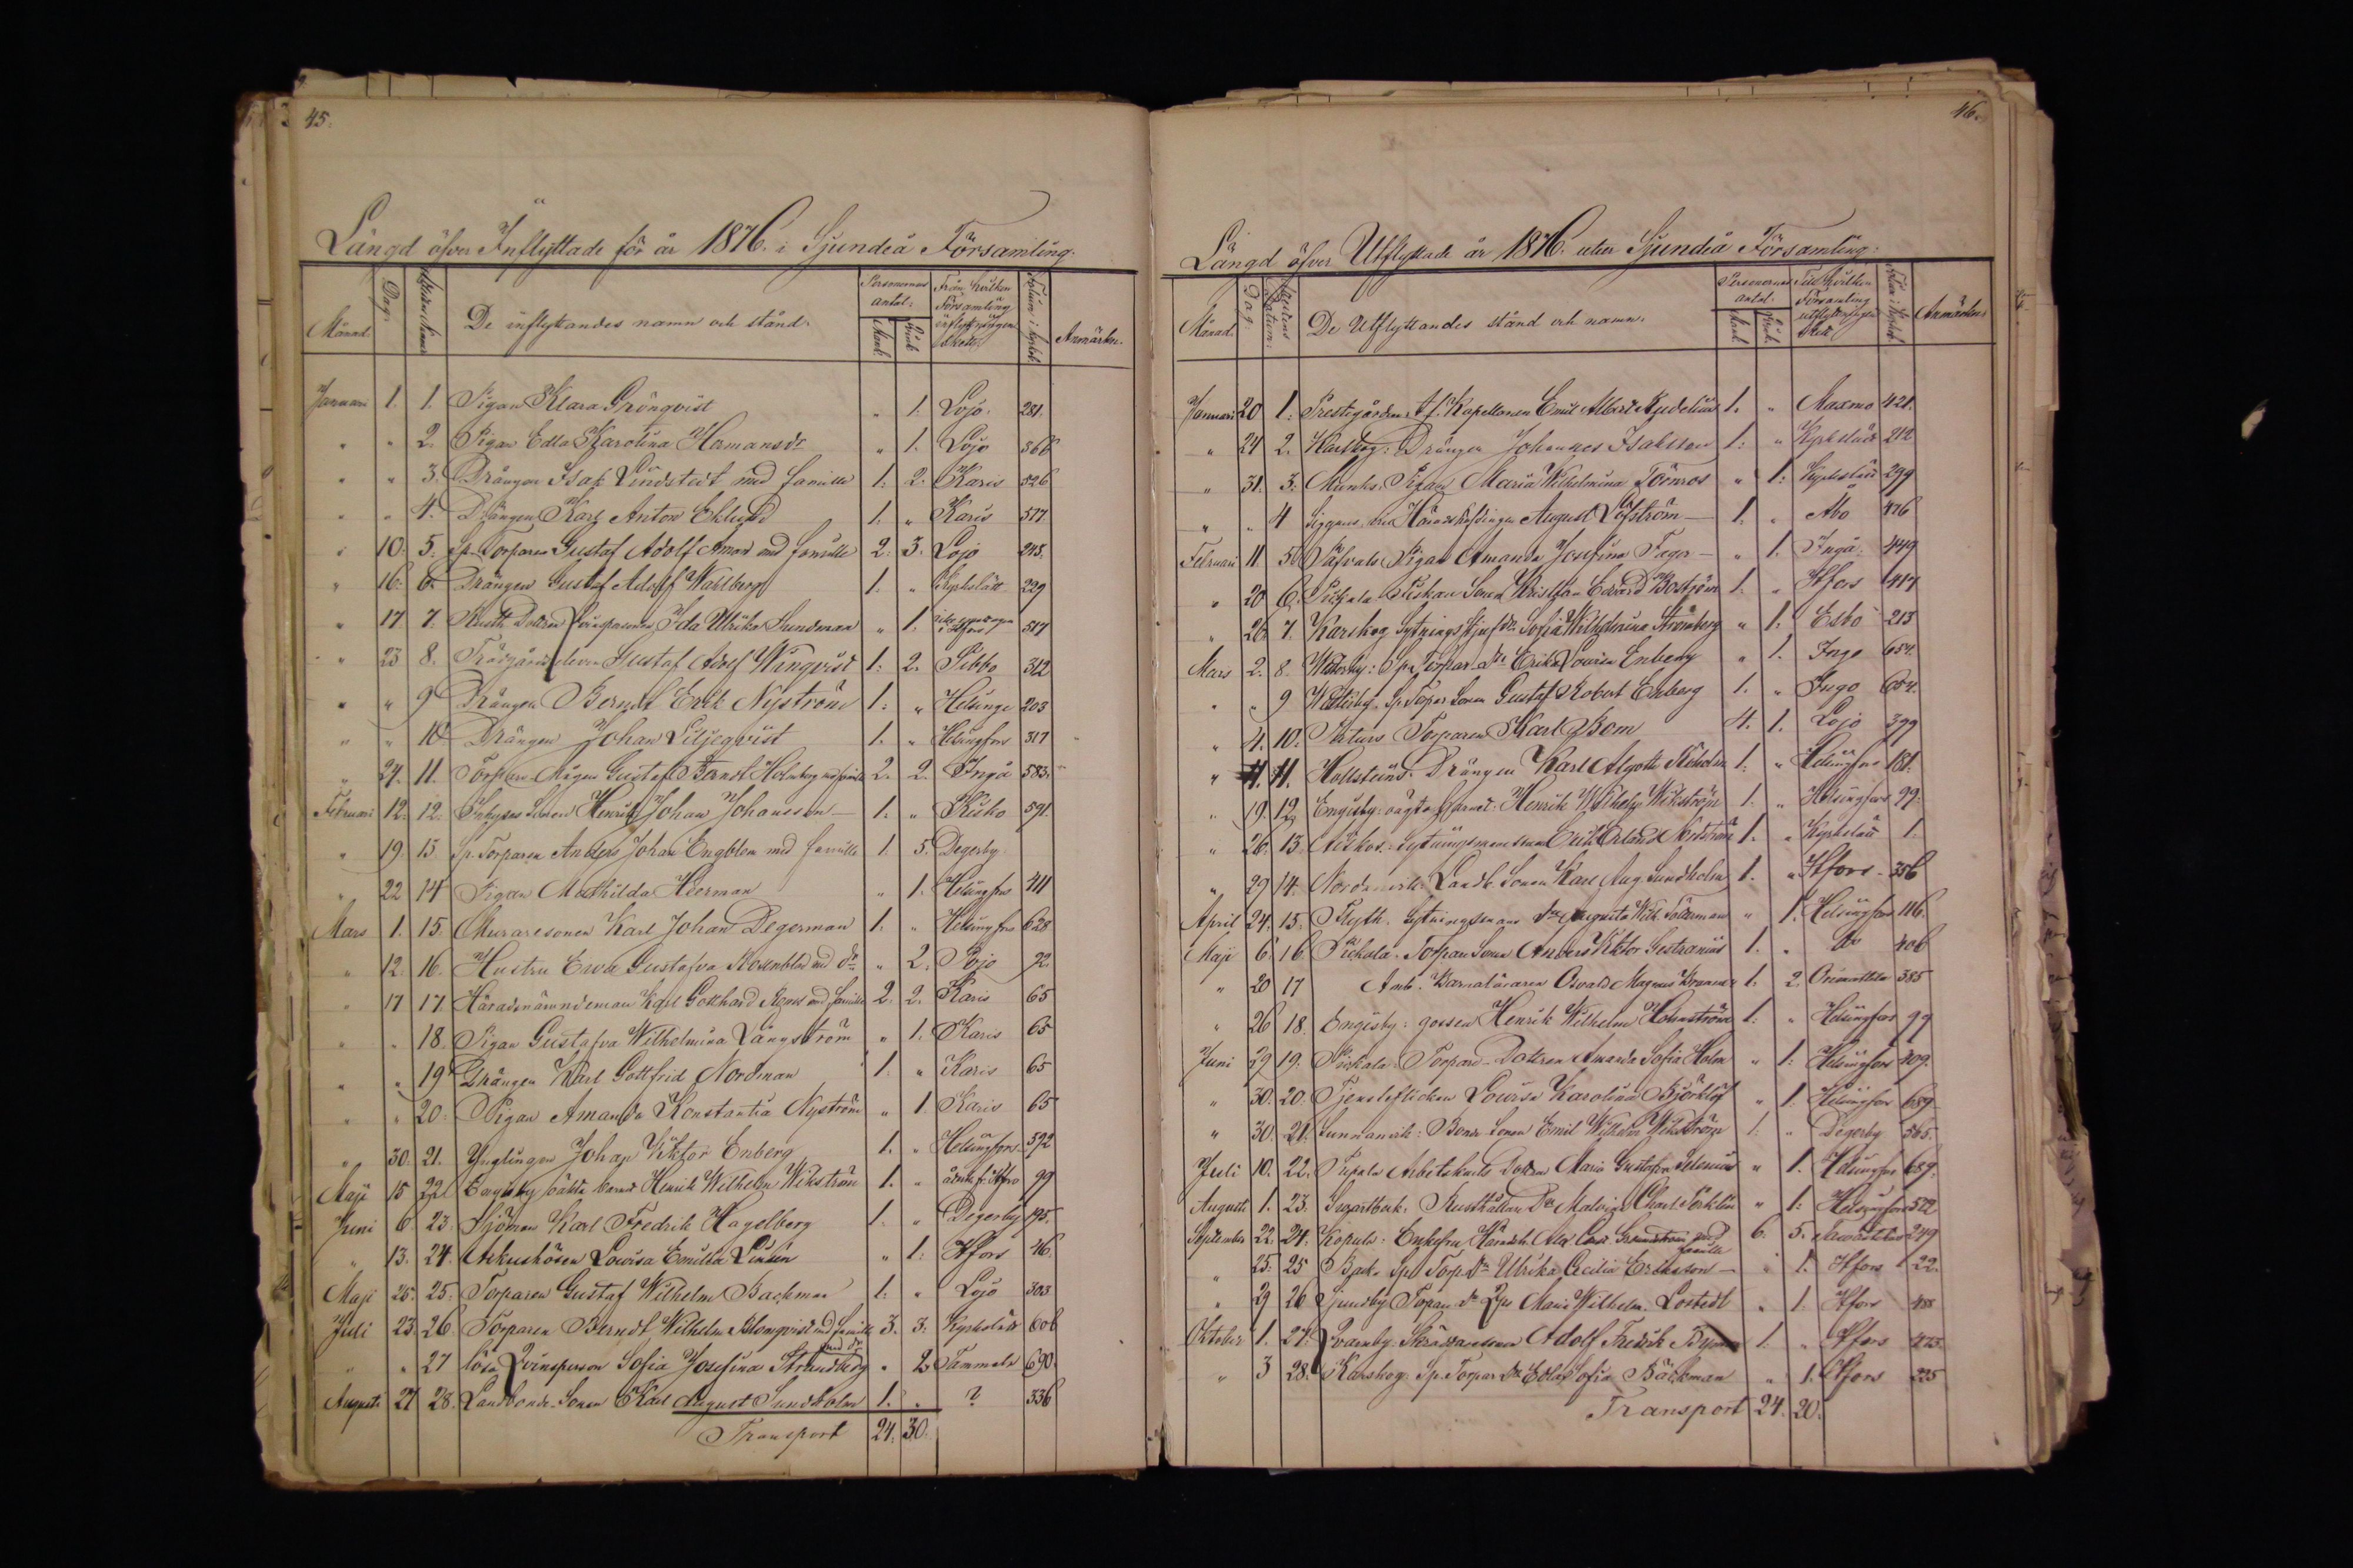 45.
Längd öfver Inflyttade för år 1876. i Sjundeå Församling.
Månad. Dag. De inflyttandes namn och stånd. Personernas antal: Mank. Qvink. Från hvilken Församling inflyttningen skett. Folium i Kyrkob. Anmärkn.
Januari 1. 1. Pigan Klara Grönqvist " 1. Lojo. 281.
" " 2. Pigan Edla Karolina Hermansdr " 1. Lojo 566
" " 3. Drängen Isak Lindstedt med familie 1. 2. Karis 526
" " 4. Drängen Karl Anton Eklund 1. " Karis 577.
" 10. 5. Sp. Torparen Gustaf Adolf med familie 2. 3. Lojo 245.
" 16. 6. Drängen Gustaf Adolf Wahlberg 1. " Kyrkslätt 229
" 17. 7. Dottren Qvinspersonen Ida Ulrika Sundman " 1. 517
" 23 8. Gustaf Adolf Winqvist 1. 2. Sibbo 312
" " 9 Drängen Berndt Erik Nyström 1. " Helsinge 203
" " 10 Drängen Johan Liljeqvist 1. " Helsingfors 317
" 24. 11. Torpare Mågen Gustaf Berndt Holmberg med familie 2. 2. Ingå 583.
Februari 12. 12. Sonen Henrik Johan Johansson 1. " Kisko 591.
" 19. 13. Sp. Torparen Anders Johan Engblom med familie 1. 5. Degerby
" 22 14 Pigan Mathilda Hierman " 1. Helsingfors 411
Mars 1. 15. Muraresonen Karl Johan Degerman 1. " Helsingfors 628
" 12. 16. Hustru Eva Gustafva Rosenblad med dr " 2. Pojo 92.
" 17 17. Häradsnämndeman Karl Gotthard med familie 2. 2. Karis 65
" " 18. Pigan Gustafva Wilhelmina Långström " 1. Karis 65
" " 19 Drängen Karl Gottfrid Nordman 1. " Karis 65
" " 20. Pigan Amanda Konstantia Nyström " 1. Karis 65
" 30. 21. Ynglingen Johan Viktor Enberg 1. " Helsingfors 592
Maji 15 22 Engisby Henrik Wilhelm Wikström 1. " 99
Juni 6. 23. Sjöman Karl Fredrik Hagelberg 1. " Degerby 195.
" 13. 24. Lovisa Emilia Linden " 1. Hfors 46.
Maji 25. 25. Torparen Gustaf Wilhelm Backman 1. " Lojo 303
Juli 23. 26. Torparen Berndt Wilhelm Blomqvist med familie 3. 3. Kyrkslätt 606
" " 27 lösa Qvinsperson Sofia Josefina Strandberg med dr " 2. Tammela 690.
Augusti 27 28. Landbonde-Sonen Karl August Sundholm 1. " ? 336
Transport 24. 30.
46.
Längd öfver Utflyttade år 1876. utur Sjundeå Församling.
Månad. Dag. De Utflyttandes stånd och namn. Personernas antal. Mank. Qvink. Till hvilken Församling utflyttningen skett Folium i Kyrkob. Anmärkn.
Januari 20 1. Prestegården: Kapellanen Emil Albert 1. " Maxmo 421.
" 24 2. Karskog: Drängen Johannes Isaksson 1. " Kyrkslätt 212
" 31. 3. Munks. Pigan Maria Wilhelmina Törnros " 1. Kyrkslätt 299
" " 4 Häradshöfdingen August Löfström 1. " Åbo 476
Februari 11. 5. Pigan Amanda Josefina Fager " 1. Ingå. 449
" 20 6. Pickala Sonen Kristian Edvard Boström 1. " Hfors 417
" 26. 7. Karskog Sytnings Hjon dr. Sofia Wilhelmina Strömberg " 1. Esbo 213
Mars 2. 8. Westerby: Sp. Torpar dr Erika Lovisa Enberg " 1. Ingo 654.
" " 9 Westerby. Sp. Torpar Sonen Gustaf Robert Enberg 1. " Ingo 654.
" 4. 10. Torparen Karl Bom 4. 1. Lojo 399
" 11. 11. Hollsteins. Drängen Karl Algoth 1. " Helsingfors 181.
" 19. 12. Engisby: Henrik Wilhelm Wikström 1. " Helsingfors 99.
" 26. 13. Sytningsman Erik Erland 1. " Kyrkslätt 1.
" 29 14. Nordanvik: Landb. Sonen Karl Aug. Sundholm 1. " Hfors. 356
April 24. 15. Sytningsmans dr Augusta Wilh. Söderman " 1. Helsingfors 116.
Maji 6. 16. Pickala. Torpare Sonen Anders Viktor 1. " do 406
" 20 17 Amb. Barnaläraren Osvald Magnus 1. 2. Orimattila 385
" 26 18. Engisby: gossen Henrik Wilhelm Holmström 1. " Helsingfors 99
Juni 29 19. Pickala Torpare-Dottren Amanda Sofia Holm " 1. Helsingfors 409.
" 30. 20. Tjensteflickan Lovisa Karolina Björklöf " 1. Helsingfors 689
" 30. 21. Sunnanvik: Bonde Sonen Emil Wilhelm Wikström 1. " Degerby 565.
Juli 10. 22. Arbetskarls Dottren Maria Gustafva " 1. Helsingfors 689.
Augusti 1. 23. Svartbäck. Rusthållare Dr Malvina Charl. " 1. Helsingfors 522
September 22. 24. Kopula: Enkefru med familie 6. 5. Tavastehus 249
" 25. 25 Bäck. Sp. Torp. dr Ulrika Cecilia Eriksson " 1. Hfors 22.
" 29 26 Sjundby Torpare dr Maria Wilhelm. Lostedt " 1. Hfors 488
Oktober 1. 27. Qvarnby: Skräddaresonen Adolf Fredrik 1. " Hfors 423.
" 3 28. Karskog: Sp. Torpar dr Edla Sofia Bäckman " 1. Hfors 225
Transport 24. 20.